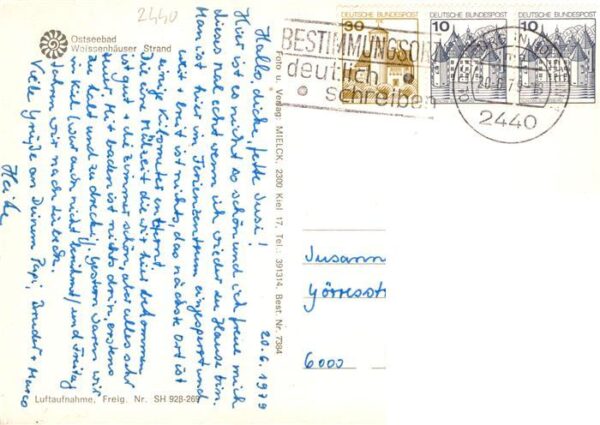 2440
Ostseebad
Weissenhäuser Strand
20.6.1979
Hallo, dicke, fette Susi!
Hier ist es nicht so schön und ich freue mich
dieses Mal echt wenn ich wieder zu Hause bin.
Man ist hier im Ferienzentrum eingesperrt und
weit + breit ist nichts, das nächste Ort ist
einige Kilometer entfernt.
Die eine Mahlzeit die wir hier bekommen
ist gut + die Zimmer schön, aber alles sehr
teuer. Mit baden ist nichts drin, erstens
zu kalt und zu dreckig. Gestern waren wir
in Kiel (war auch nicht berühmt) und Freitag
fahren wir nach Lübeck.
Viele Grüße an Deinen Papi, Bruder + Marco
Heike
Luftaufnahme, Freig. Nr. SH 928-269
Foto u. Verlag: MIELCK, 2300 Kiel 17, Tel.: 391314, Best. Nr. 7384
BESTIMMUNGSOR
deutlich
schreiben
30
DEUTSCHE BUNDESPOST
10
DEUTSCHE BUNDESPOST
10
DEUTSCHE BUNDESPOST
2440
Susann
Görresst
6000